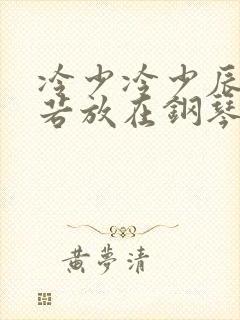 冷少冷少辰
若放在鋼琴
黃夢清